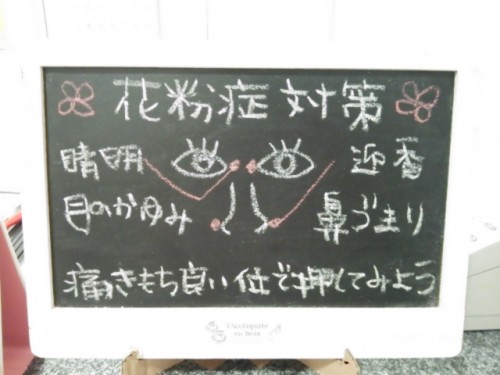 花粉症対策
晴明 迎香
目のかゆみ 鼻づまり
痛きもち良い位で押してみよう